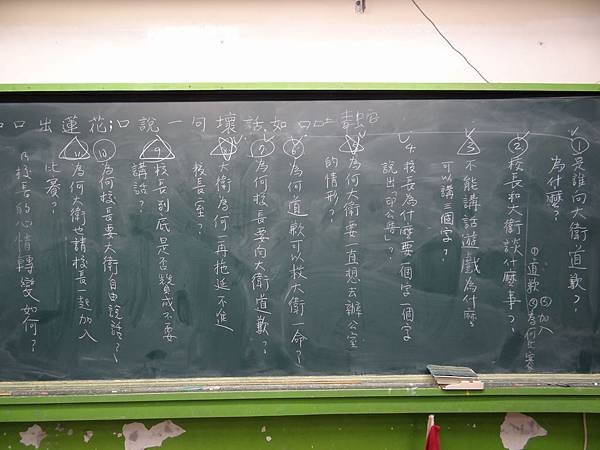 口出蓮花 說一句壞話如
①是誰向大衛道歉?
為什麼?
②校長和大衛談什麼事?
①道歉 ②為何比賽
③加入
③不能講話遊戲為什麼
可以講三個字?
4.校長為什麼要一個字一個字
說出「辦公室」?
為何大衛要一直想去辦公室
的情形?
為何道歉可以救大衛一命?
⑦為何校長要向大衛道歉?
⑧大衛為何一再拖延不進
校長室?
9.校長到底是否贊成不要
講話?
⑩為何校長要大衛自由說話?
11.為何大衛也請校長一起加入
比賽?
校長的心情轉變如何?